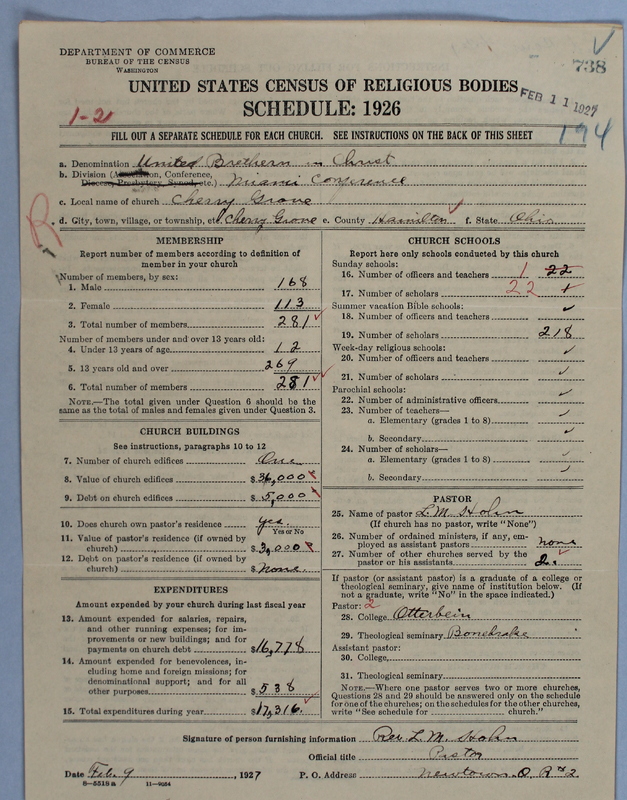 DEPARTMENT OF COMMERCE
BUREAU OF THE CENSUS
WASHINGTON
738
UNITED STATES CENSUS OF RELIGIOUS BODIES
FEB 11 1927
SCHEDULE: 1926
1-2
194
FILL OUT A SEPARATE SCHEDULE FOR EACH CHURCH. SEE INSTRUCTIONS ON THE BACK OF THIS SHEET
a. Denomination United Brethern in Christ
b. Division (Association, Conference, Diocese, Presbytery, Synod, etc.) Miami Conference
c. Local name of church Cherry Grove
d. City, town, village, or township, etc. Cherry Grove e. County Hamilton f. State Ohio
R
MEMBERSHIP
Report number of members according to definition of
member in your church
Number of members, by sex:
1. Male 168
2. Female 113
3. Total number of members 281
Number of members under and over 13 years old:
4. Under 13 years of age 12
5. 13 years old and over 269
6. Total number of members 281
NOTE.—The total given under Question 6 should be
same as the total of males and females given under Question 3.
CHURCH BUILDINGS
See instructions, paragraphs 10 to 12
7. Number of church edifices One
8. Value of church edifices $36,000
9. Debt on church edifices $5,000
10. Does church own pastor's residence yes.
Yes or No
11. Value of pastor's residence (if owned by
church) $3,000
12. Debt on pastor's residence (if owned by
church) $None.
EXPENDITURES
Amount expended by your church during last fiscal year
13. Amount expended for salaries, repairs,
and other running expenses; for im-
provements or new buildings; and for
payments on church debt $16,778
14. Amount expended for benevolences, in-
cluding home and foreign missions; for
denominational support; and for all
other purposes $538
15. Total expenditures during year $17,316.
CHURCH SCHOOLS
Report here only schools conducted by this church
Sunday schools:
16. Number of officers and teachers 1 22
17. Number of scholars 22 1
Summer vacation Bible schools:
18. Number of officers and teachers
19. Number of scholars 218
Week-day religious schools:
20. Number of officers and teachers
21. Number of scholars
Parochial schools:
22. Number of administrative officers
23. Number of teachers—
a. Elementary (grades 1 to 8)
b. Secondary
24. Number of scholars—
a. Elementary (grades 1 to 8)
b. Secondary
PASTOR
25. Name of pastor L. M. Hohn
(If church has no pastor, write "None")
26. Number of ordained ministers, if any, em-
ployed as assistant pastors none
27. Number of other churches served by the
pastor or his assistants 2.
If pastor (or assistant pastor) is a graduate of a college or
theological seminary, give name of institution below. (If
not a graduate, write "No" in the space indicated.)
Pastor: 2
28. College Otterbein
29. Theological seminary Bonebrake
Assistant pastor:
30. College
31. Theological seminary
NOTE.—Where one pastor serves two or more churches,
Questions 28 and 29 should be answered only on the schedule
for one of the churches; on the schedules for the other churches,
write "See schedule for church."
Signature of person furnishing information Rev. L. M. Hohn
Official title Pastor
Date Feb. 9, 1927 P. O. Address Newtown. O. R#2
8—5518a 11—9554